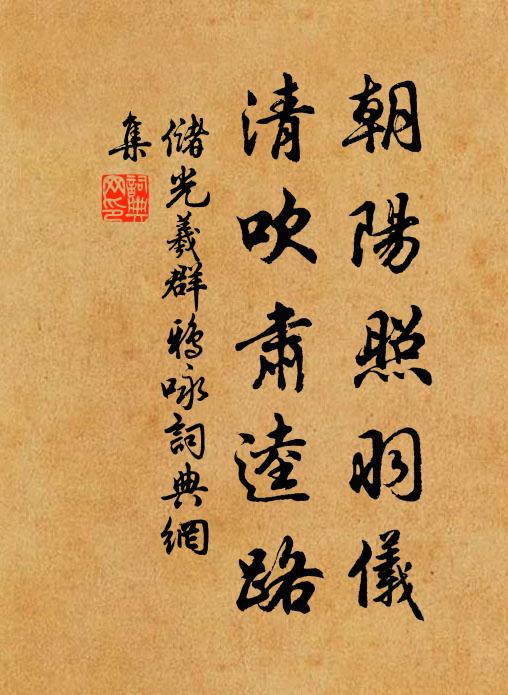 朝陽照羽儀
清吹肅逵路
儲光羲群鴉咏詞典網
集
詞典
网印